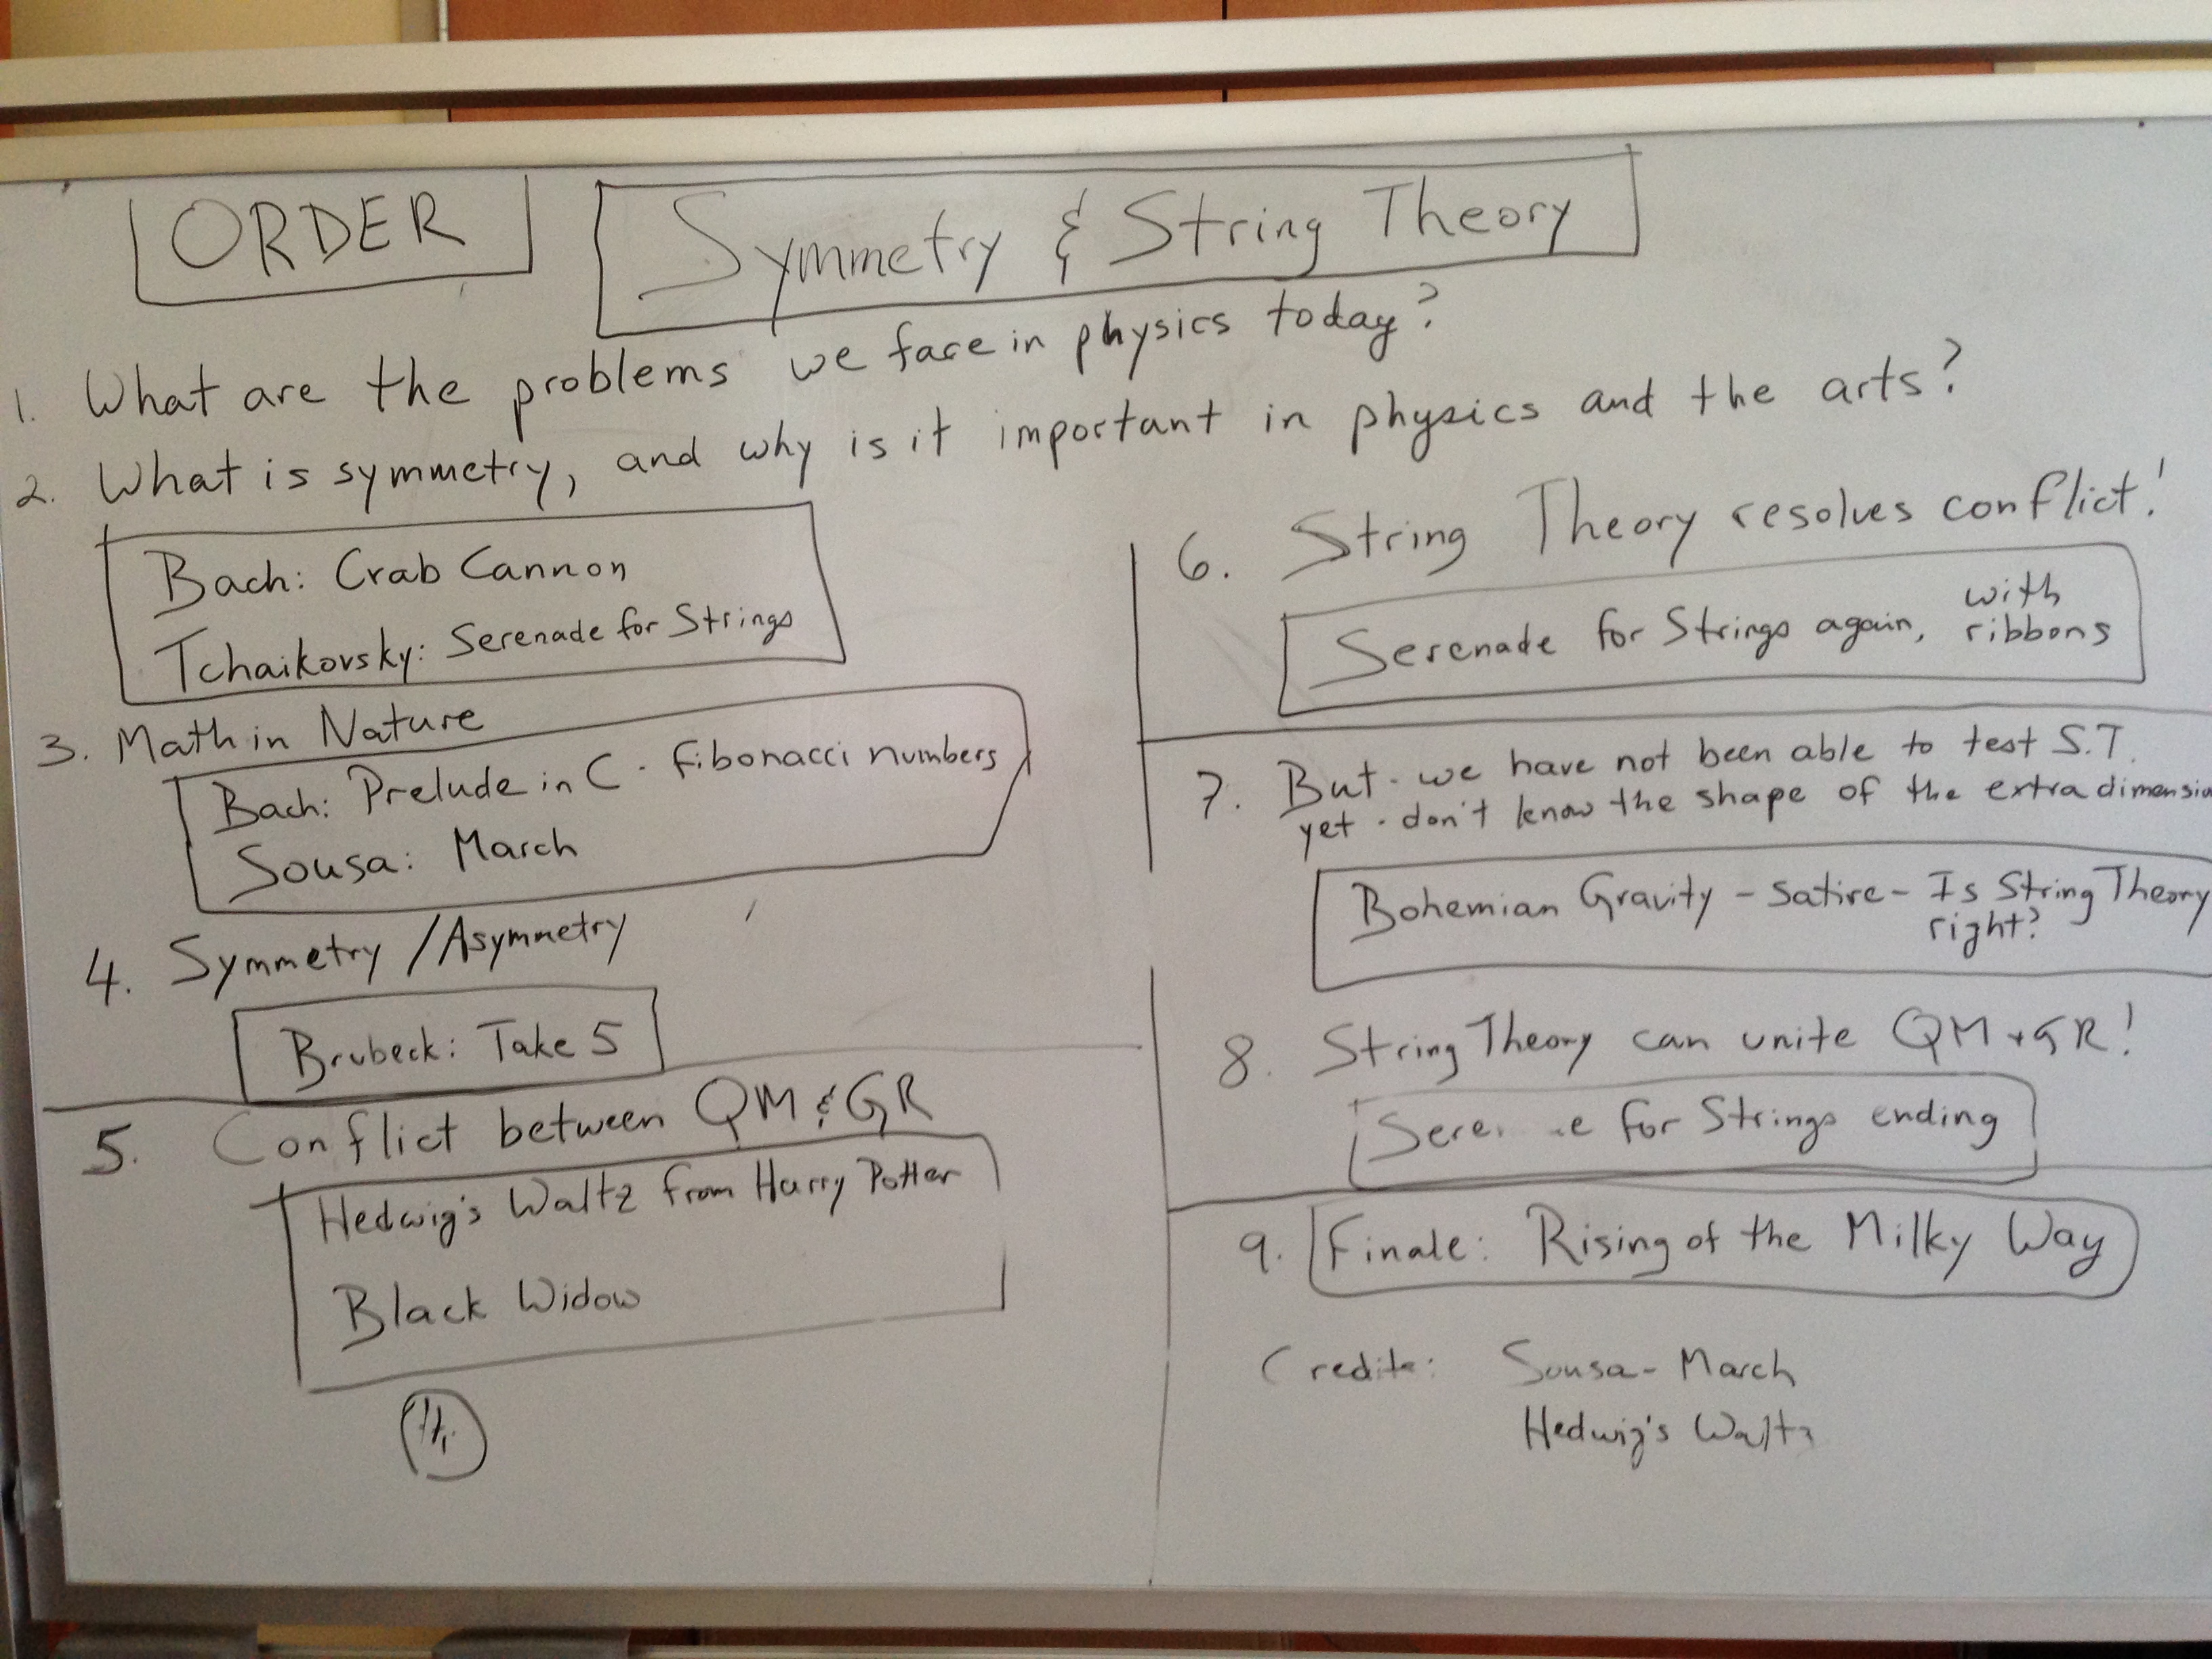 ORDER
Symmetry & String Theory
1. What are the problems we face in physics today?
2. What is symmetry, and why is it important in physics and the arts?
Bach: Crab Cannon
Tchaikovsky: Serenade for Strings
3. Math in Nature
Bach: Prelude in C - Fibonacci numbers
Sousa: March
4. Symmetry / Asymmetry
Brubeck: Take 5
5. Conflict between QM & GR
Hedwig's Waltz from Harry Potter
Black Widow
6. String Theory resolves conflict!
Serenade for Strings again, with
ribbons
7. But - we have not been able to test S.T.
yet - don't know the shape of the extra dimensio
Bohemian Gravity - Satire - Is String Theory
right?
8. String Theory can unite QM + GR!
Sere e for Strings ending
9. Finale: Rising of the Milky Way
Credits: Sousa - March
Hedwig's Waltz